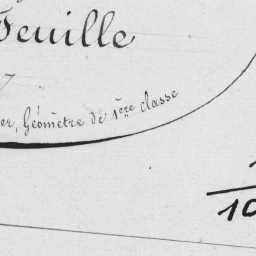 Feuille
er, Géomètre de 1ère classe
10